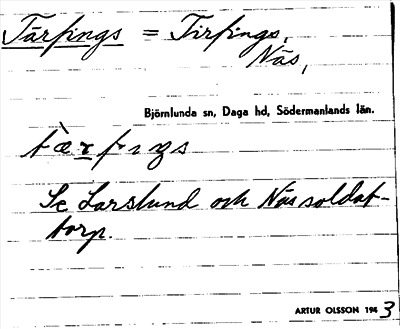 Tärpings = Tirpings,
Näs,
Björnlunda sn, Daga hd, Södermanlands län.
Se Larslund och Näs soldat-
torp.
ARTUR OLSSON 1943